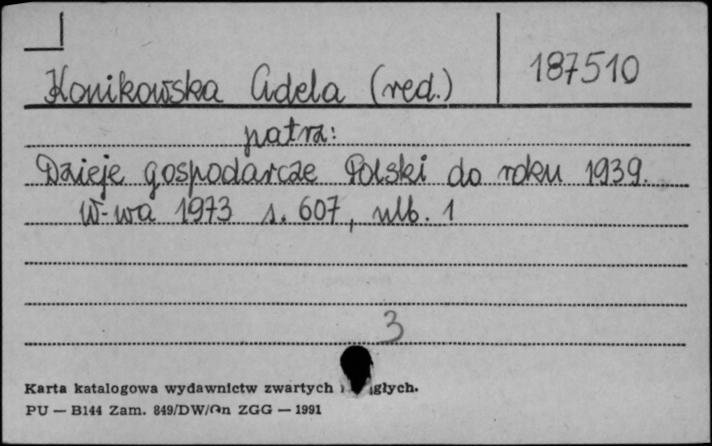 Konikowska Adela (red.)
187510
patrz:
Dzieje gospodarcze Polski do roku 1939.
W-wa 1973 s. 607, nlb. 1
3
Karta katalogowa wydawnictw zwartych
PU — B144 Zam. 849/DW/On ZGG — 1991